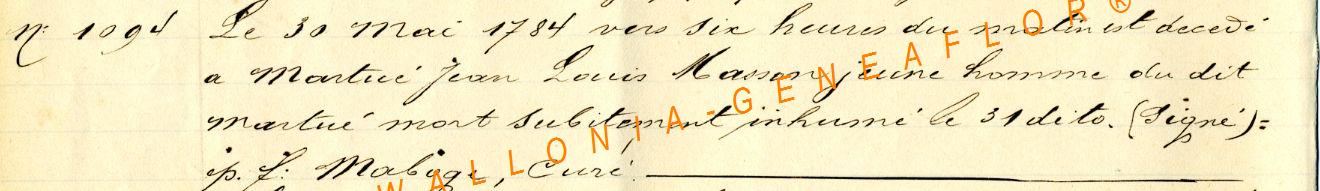 N.° 1094 Le 30 Mai 1784 vers six heures du matin est decedé
a Martué Jean Louis Masson, jeune homme du dit
Martué mort subitement inhumé le 31 dito. (Signé)=
p. f: Mabige, Curé.
WALLONIA-GENEAFLOR®